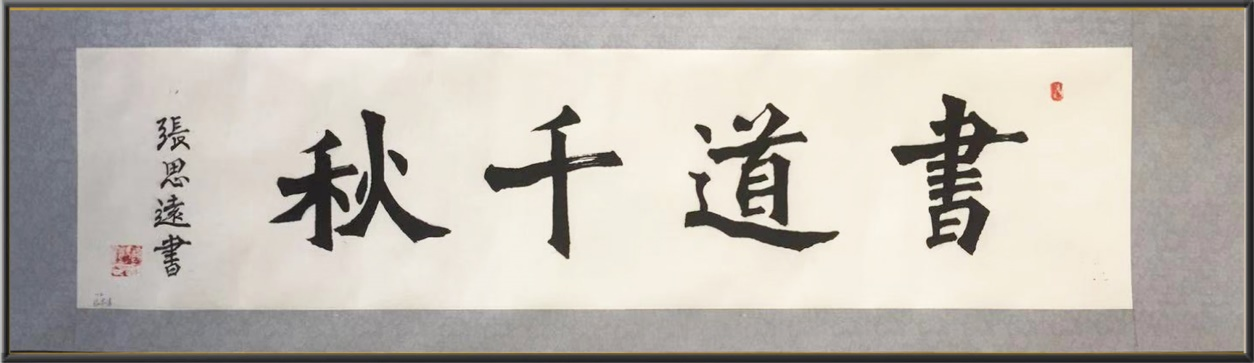 書道千秋
張思遠書